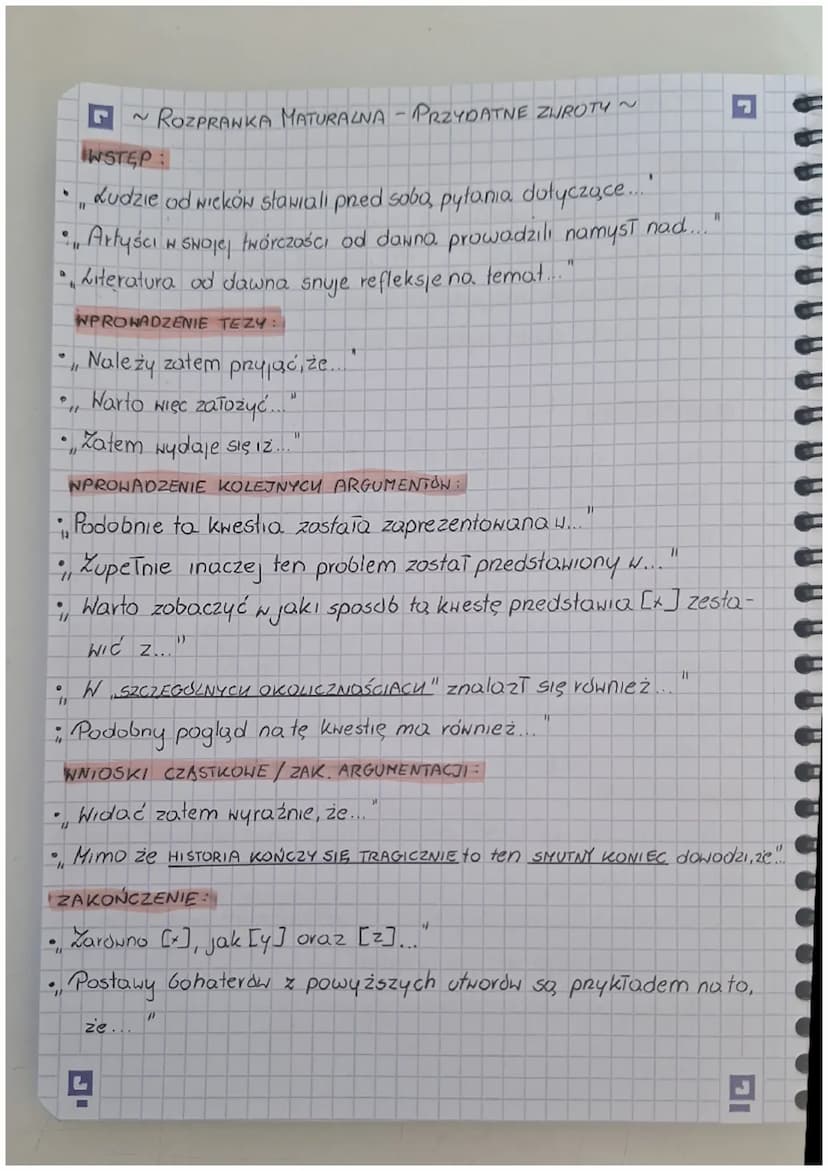 ~ ROZPRAWKA MATURALNA - PRZYDATNE ZWROTY ~
WSTĘP:
• „Ludzie od wieków stawiali przed sobą pytania dotyczące..."
• „Artyści w swojej twórczości od dawna prowadzili namysł nad..."
• „Literatura od dawna snuje refleksje na temat..."
WPROWADZENIE TEZY:
• „Należy zatem przyjąć, że..."
• „Warto więc założyć..."
• „Zatem wydaje się iż..."
WPROWADZENIE KOLEJNYCH ARGUMENTÓW:
• „Podobnie ta kwestia została zaprezentowana w..."
• „Zupełnie inaczej ten problem został przedstawiony w..."
• „Warto zobaczyć w jaki sposób tą kwestę przedstawia [x] zesta-
wić z..."
• „W „SZCZEGÓLNYCH OKOLICZNOŚCIACH" znalazł się również..."
• „Podobny pogląd na tę kwestię ma również..."
WNIOSKI CZĄSTKOWE / ZAK. ARGUMENTACJI:
• „Widać zatem wyraźnie, że..."
• „Mimo że HISTORIA KOŃCZY SIĘ TRAGICZNIE to ten SMUTNY KONIEC dowodzi, że"...
ZAKOŃCZENIE:
• „Zarówno [x], jak [y] oraz [z]..."
• „Postawy bohaterów z powyższych utworów są przykładem na to,
że..."